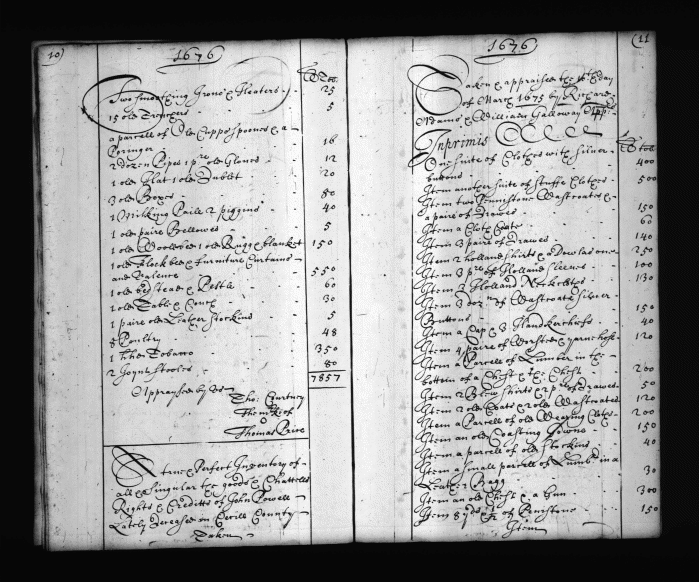 10)
1676
lb Tob.
Two smoothing Irons & Heaters
25
15 old Trenchers
5
a parcell of Old Cupps Spoones & a
Poringer
16
2 dozen Pipes 1 pr old Gloves
12
1 old Hat 1 old Dublet
20
3 old Boxes
80
1 Milking Paile 2 piggins
40
1 old paire Bellowes
5
1 old Woolbed 1 old Rugg & blanket
150
1 old Flockbed & furniture Curtains
and Valence
550
1 old bedstead & Pestle
60
1 old Table & Couch
30
1 paire old Leather Stockins
5
8 Poultry
48
1 hhd Tobacco
350
2 Joynt Stooles
80
7857
Appraysed by us
Tho: Courtney
The mark of
Thomas Price
A true & Perfect Inventory of
all & Singular the goods & Chattells
Rights & Creditts of John Powell
Lately deceased in Cecill County
Taken
(11
1676
Taken & appraised the 16th day
of March 1675 by Richard
Adams & William Galloway App:
Inprimis
lb Tob
One suite of Clothes with silver
buttons
400
Item another suite of stuffe Clothes
500
Item two Pennistone Wastcoates &
a paire of Drawes
150
Item a Cloth Coate
60
Item 3 paire of Drawes
140
Item 2 holland shirts & a Dowlas one
250
Item 3 pr of Holland sleeves
100
Item 2 Holland Neckclothes
130
Item 3 doz: of Wastcoate Silver
Buttons
150
Item a Cap & 3 Handkercheifs
40
Item 4 paire of Worsted & yarn hose
120
Item a Parcell of Lumber in the
bottom of a Chest & the Chest
200
Item 2 Blew shirts & 2 pr of Drawes
50
Item 2 old Coats & 2 old Wastcoates
120
Item a Parcell of old Wearing Cloths
200
Item an old Coasting Gowne
150
Item a parcell of old Stockins
40
Item a small parcell of Lumbr in a
Leather Bagg
30
Item an old Chest & a Gun
300
Item 8 yds 1/2 of Penistone
150
Item